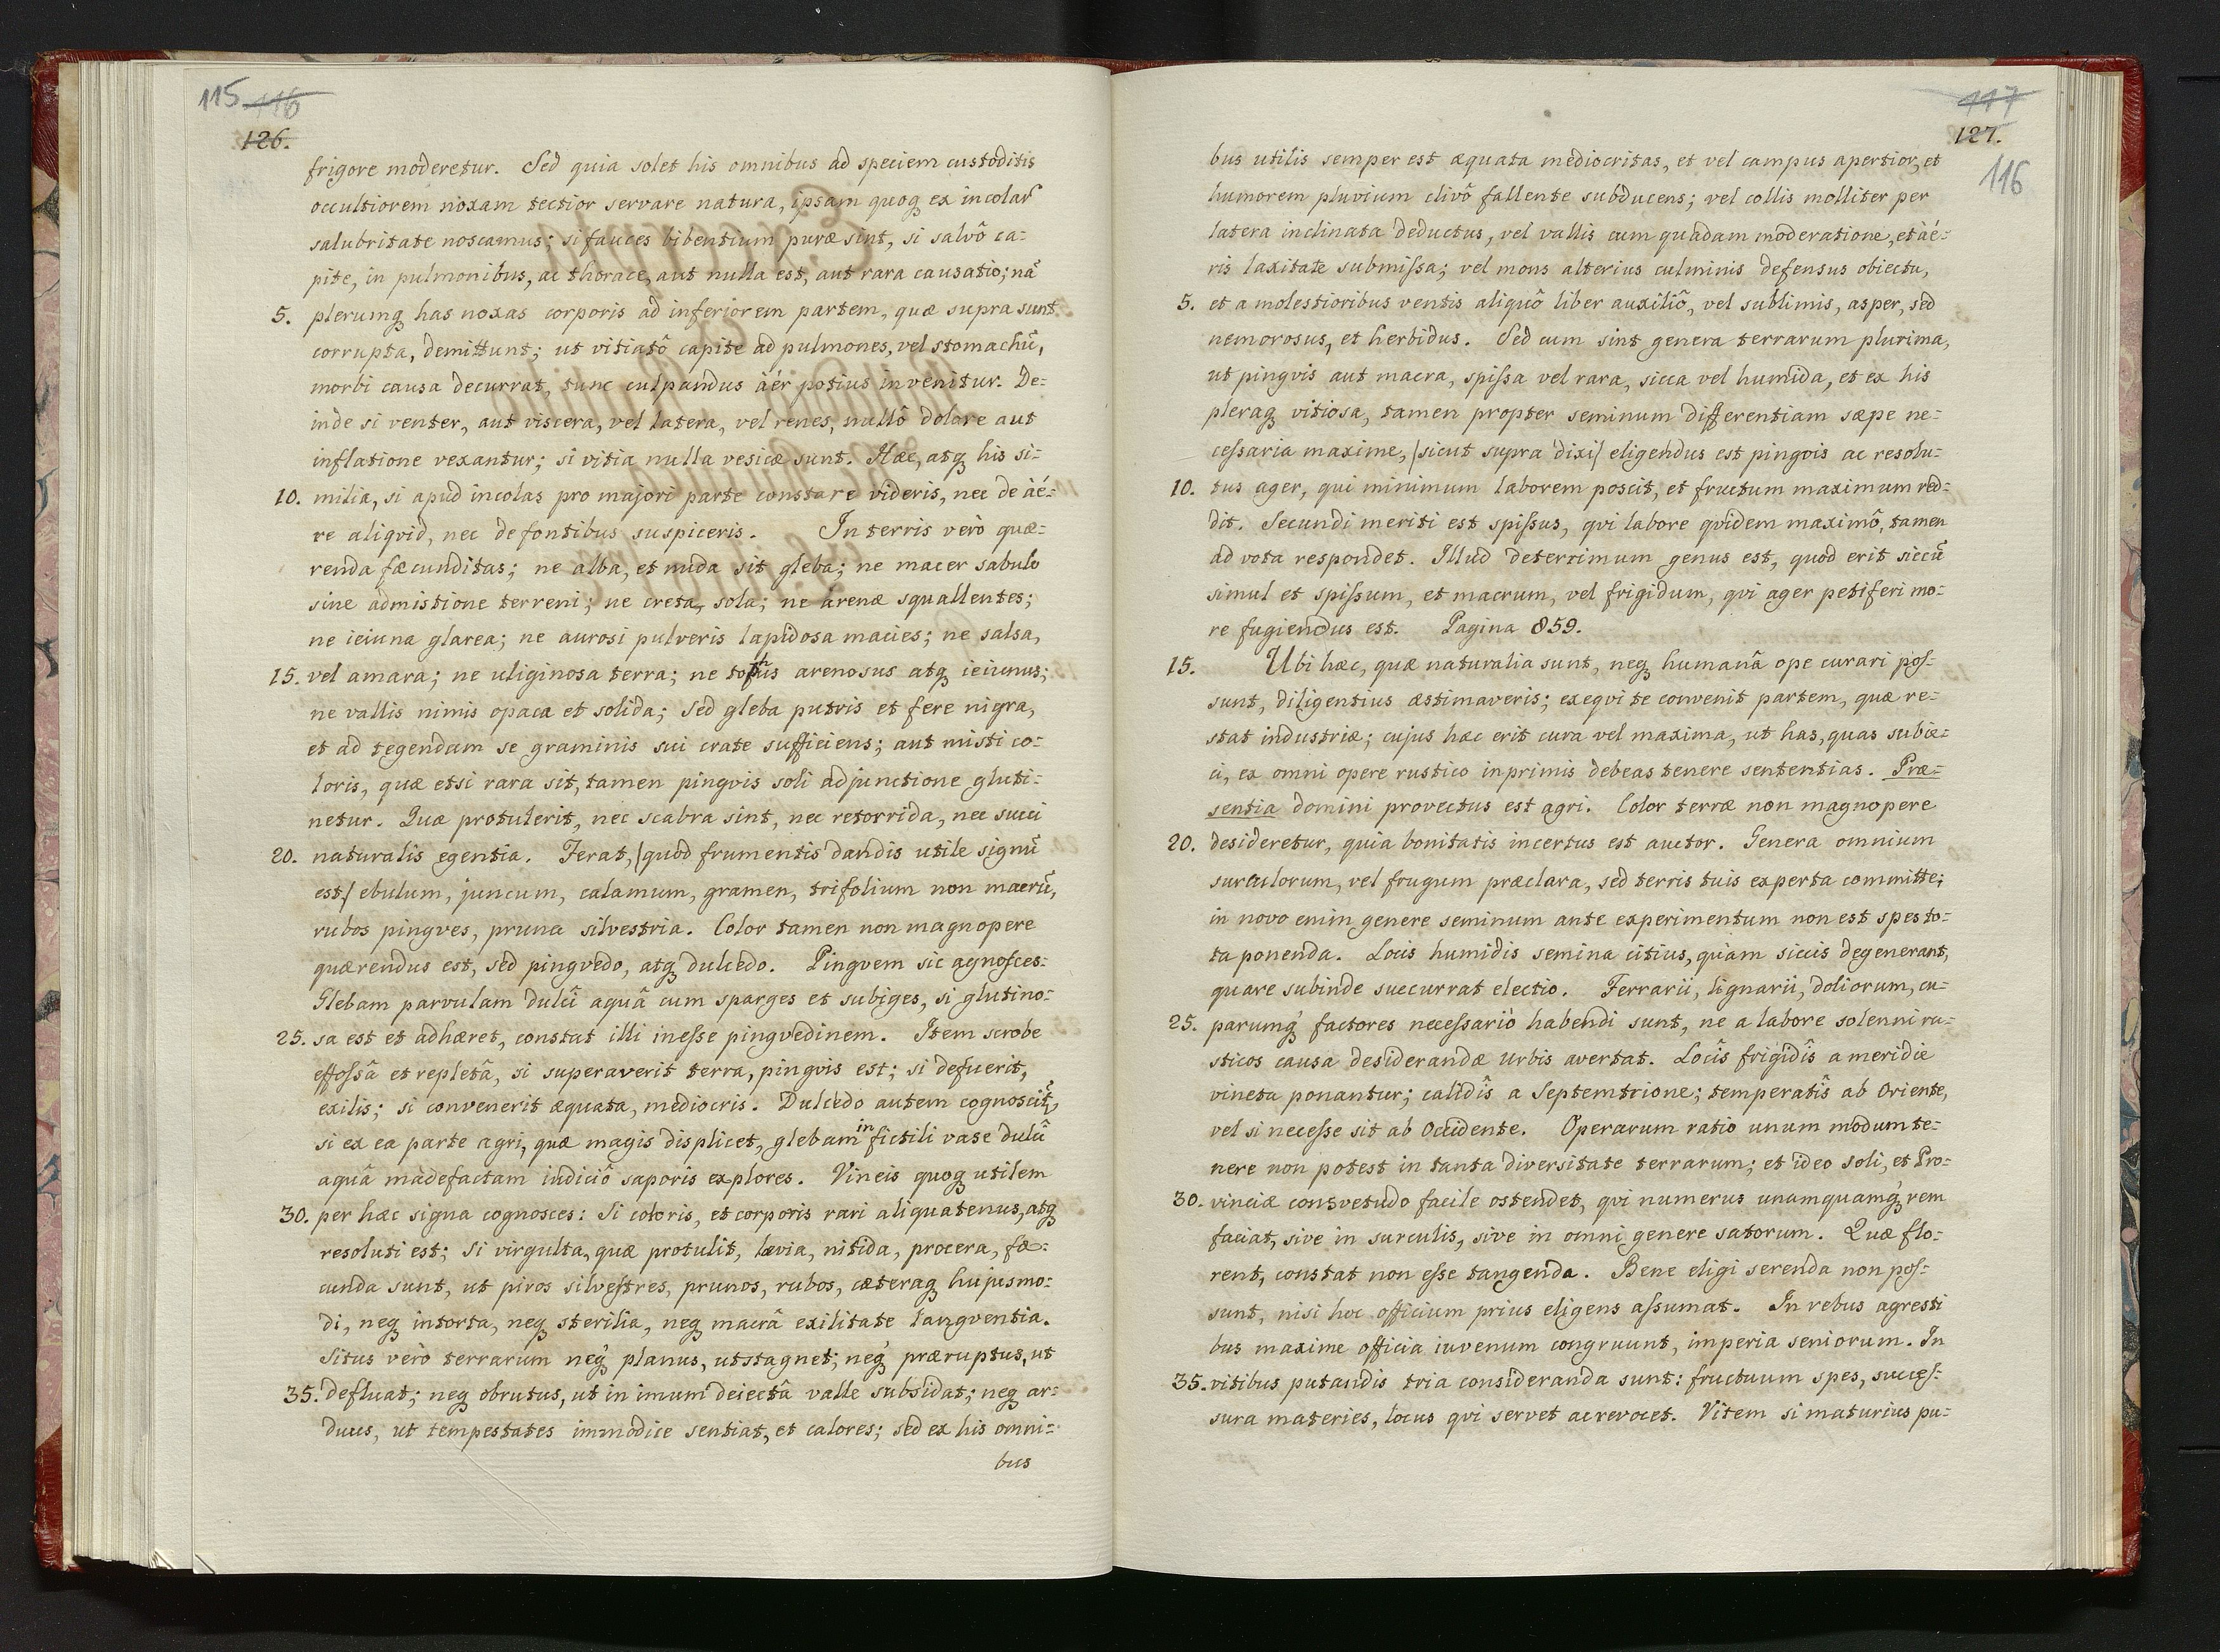 115 116
126.
frigore moderetur. Sed quia solet his omnibus ad speciem custoditis
occultiorem noxam tectior servare natura, ipsam quoq̨ ex incolar̃
salubritate noscamus; si fauces bibentium puræ sint, si salvô ca=
pite, in pulmonibus, ac thorace, aut nulla est, aut rara causatio; nã
5. plerumq̨ has noxas corporis ad inferiorem partem, quæ supra sunt
corrupta, demittunt; ut vitiatô capite ad pulmones, vel stomachũ,
morbi causa decurrat, tunc culpandus aër potius invenitur. De=
inde si venter, aut viscera, vel latera, vel renes, nullô dolore aut
inflatione vexantur; si vitia nulla vesicæ sunt. Hæc, atq̨ his si=
10. milia, si apud incolas pro majori parte constare videris, nec de aë=
re aliqvid, nec de fontibus suspiceris. In terris verò quæ=
renda fæcunditas; ne alba, et nuda sit gleba; ne macer sabulo
sine admistione terreni; ne creta, sola; ne arenæ squallentes;
ne ieiuna glarea; ne aurosi pulveris lapidosa macies; ne salsa,
15. vel amara; ne uliginosa terra; ne tophus arenosus atq̨ ieiunus;
ne vallis nimis opaca et solida; sed gleba putris et fere nigra,
et ad tegendam se graminis sui crate sufficiens; aut misti co=
loris, quæ etsi rara sit, tamen pingvis soli adjunctione gluti=
netur. Quæ protulerit, nec scabra sint, nec retorrida, nec succi
20. naturalis egentia. Ferat, /quod frumentis dandis utile signũ
est/ ebulum, juncum, calamum, gramen, trifolium non macrũ,
rubos pingves, pruna silvestria. Color tamen non magnopere
quærendus est, sed pingvedo, atq̨ dulcedo. Pingvem sic agnosces:
Glebam parvulam dulcî aquâ cum sparges et subiges, si glutino=
25. sa est et adhæret, constat illi inesse pingvedinem. Item scrobe
effossâ et repletâ, si superaverit terra, pingvis est; si defuerit,
exilis; si convenerit æquata, mediocris. Dulcedo autem cognoscit̃,
si ex ea parte agri, quæ magis displicet, glebam in fictili vase dulcî
aquâ madefactam iudiciô saporis explores. Vineis quoq̨ utilem
30. per hæc signa cognosces: Si coloris, et corporis rari aliquatenus, atq̨
resoluti est; Si virgulta, quæ protulit, lævia, nitida, procera, fæ=
cunda sunt, ut piros silvestres, prunos, rubos, cæteraq̨ hujusmo=
di, neq̨ intorta, neq̨ sterilia, neq̨ macrâ exilitate langventia.
Situs verò terrarum neq̨́ planus, ut stagnet; neq̨́ præruptus, ut
35. defluat; neq̨ obrutus, ut in imum deiectâ valle subsidat; neq̨ ar=
duus, ut tempestates immodice sentiat, et calores; sed ex his omni=
bus
117
127.
116
bus utilis semper est æquata mediocritas, et vel campus apertior, et
humorem pluvium clivô fallente subducens; vel collis molliter per
latera inclinata deductus, vel vallis cum quadam moderatione, et aë=
ris laxitate submissa; vel mons alterius culminis defensus obiectu,
5. et a molestioribus ventis aliquô liber auxiliô, vel sublimis, asper, sed
nemorosus, et herbidus. Sed cum sint genera terrarum plurima,
ut pingvis aut macra, spissa vel rara, sicca vel humida, et ex his
pleraq̨ vitiosa, tamen propter seminum differentiam sæpe ne=
cessaria maxime, /sicut supra dixi/ eligendus est pingvis ac resolu=
10. tus ager, qui minimum laborem poscit, et fructum maximum red=
dit. Secundi meriti est spissus, qvi labore qvidem maximô, tamen
ad vota respondet. Illud deterrimum genus est, quod erit siccũ
simul et spissum, et macrum, vel frigidum, qvi ager petiferi mo=
re fugiendus est. Pagina 859.
15. Ubi hæc, quæ naturalia sunt, neq̨ humanâ ope curari pos=
sunt, diligentius æstimaveris; exeqvi te convenit partem, quæ re=
stat industriæ; cujus hæc erit cura vel maxima, ut has, quas subie=
ci, ex omni opere rustico inprimis debeas tenere sententias. Præ=
sentia domini provectus est agri. Color terræ non magnopere
20. desideretur, quia bonitatis incertus est auctor. Genera omnium
surculorum, vel frugum præclara, sed terris tuis experta committe;
in novo enim genere seminum ante experimentum non est spes to=
ta ponenda. Locis humidis semina citius, quàm siccis degenerant,
quare subinde succurrat electio. Ferrarii, lignarii, doliorum, cu=
25. parumq̨́ factores necessariò habendi sunt, ne a labore solenni ru=
sticos causa desiderandæ Urbis avertat. Locîs frigidîs a meridie
vineta ponantur; calidîs a Septemtrione; temperatîs ab Oriente,
vel si necesse sit ab Occidente. Operarum ratio unum modum te=
nere non potest in tanta diversitate terrarum; et ideo soli, et Pro=
30. vinciæ consvetudo facile ostendet, qvi numerus unamquamq̨́ rem
faciat, sive in surculis, sive in omni genere satorum. Quæ flo=
rent, constat non esse tangenda. Bene eligi serenda non pos=
sunt, nisi hoc officium prius eligens assumat. In rebus agresti
bus maxime officia iuvenum congruunt, imperia seniorum. In
35. vitibus putandis tria consideranda sunt: fructuum spes, succes=
sura materies, locus qvi servet ac revocet. Vitem si maturius pu=